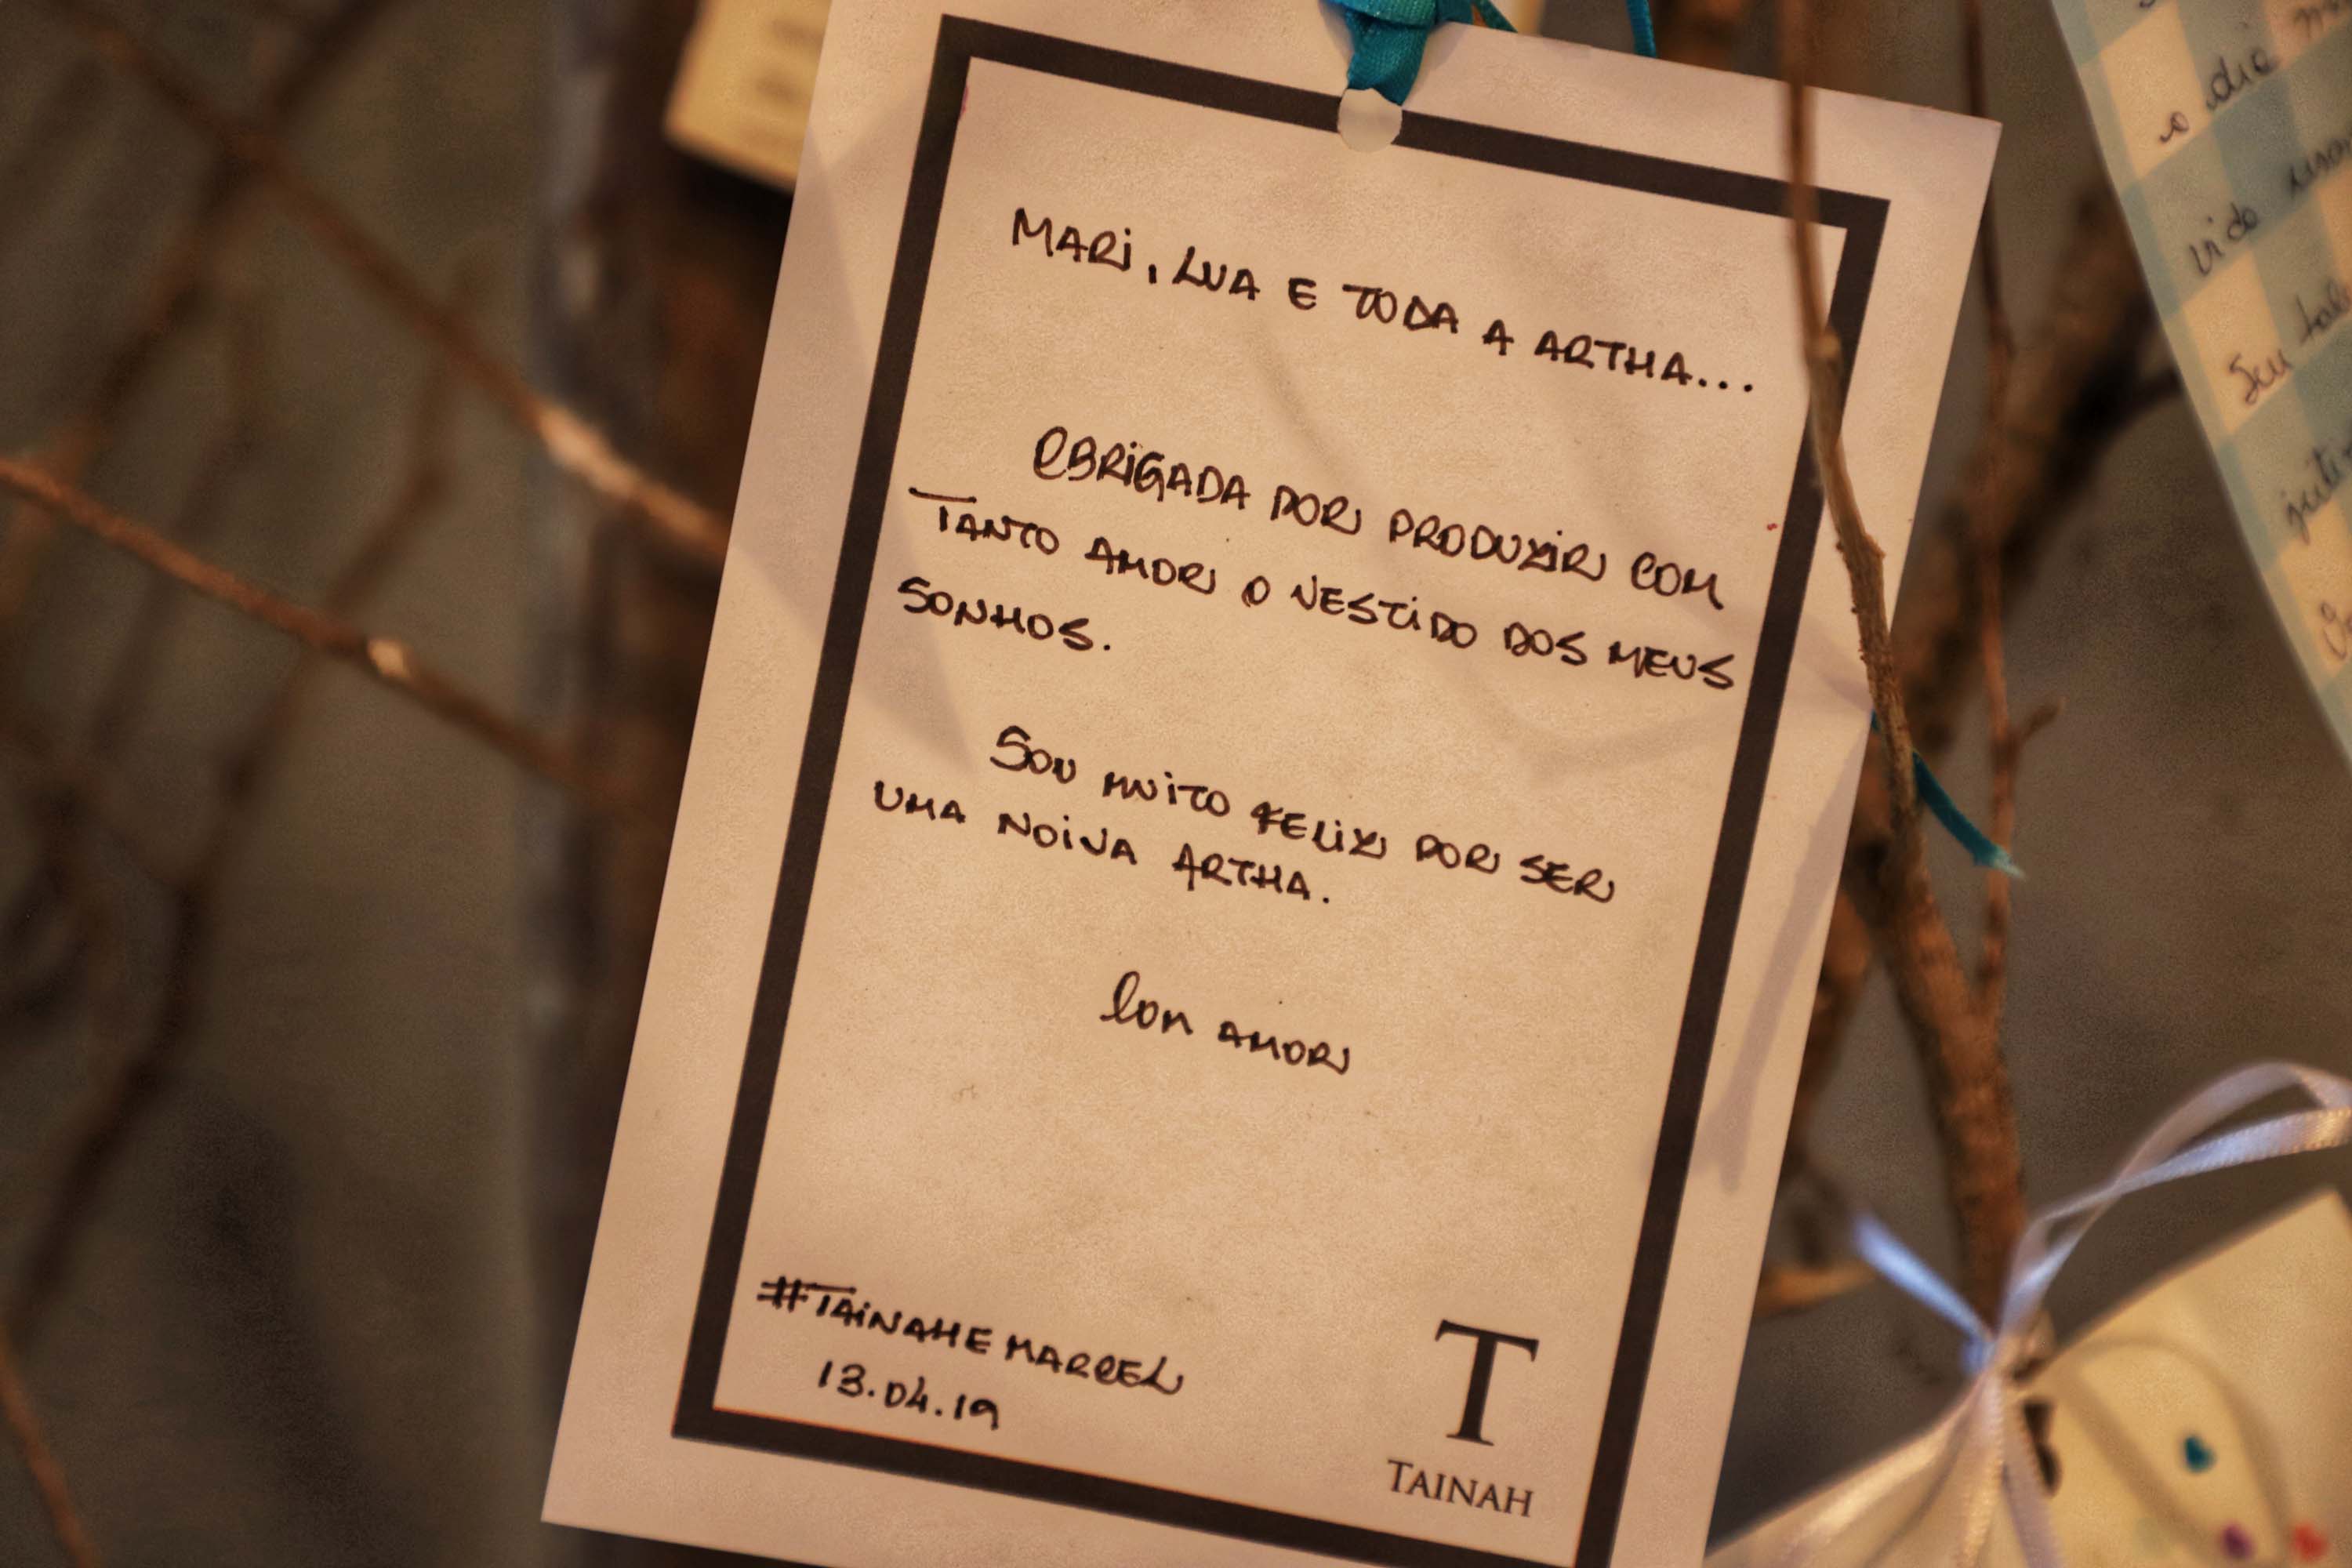 MARI, LUA E TODA A ARTHA...
OBRIGADA POR PRODUZIR COM
TANTO AMOR O VESTIDO DOS MEUS
SONHOS.
SOU MUITO FELIZ POR SER
UMA NOIVA ARTHA.
COM AMOR
#TAINAHEMARCEL
13.04.19
T
TAINAH
o dia
vida
Seu